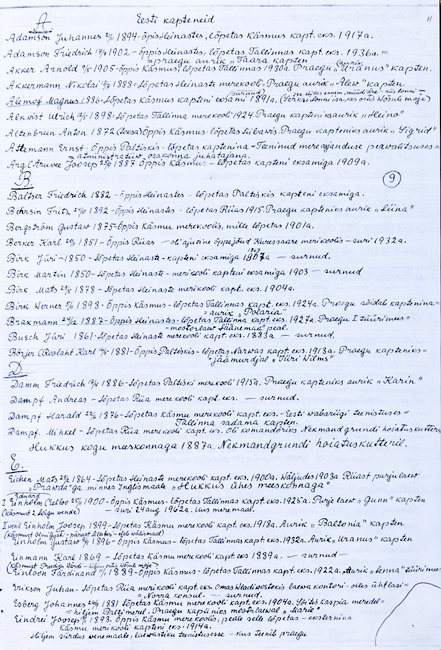 A
Eesti kapteneid
11
Adamson Johannes 1899-õppis Heinastes, lõpetas Käsmus kapt. eks. 1917a.
Adamson Friedrich 1902-õppis Heinastes, lõpetas Tallinnas kapt. eks. 1936a =
=praegu aurik „Taara kapten
Akker Arnold 1905-õppis Käsmus, lõpetas Tallinnas 1930a Praegu „Uranus" kapten.
Akkermann Nikolai 1888-lõpetas Heinaste merekooli. Praegu aurik „Alev" kapten
Magnus 1886-lõpetas Käsmus kapteni eksami 1891a.
Ahnvist Ulrich 1898-lõpetas Tallinna merekooli 1924. Praegu kapteniks aurik „Heino"
Altenbrun Anton 1872 õppis Käsmus-lõpetas Praegu kapteniks aurik „Sigrid"
Attemann Ernst-õppis Paltiskis-lõpetas kaptenina-Teeninud mereasjanduse peavalitsuses=
=administratiiv osakonna juhatajana.
Joosep 1887 õppis Käsmus - lõpetas kapteni eksamiga 1909a.
B.
9
Baltser Friedrich 1882-õppis Heinastes-lõpetas Paltiskis kapteni eksamiga.
Behrsin Fritz 1892-õppis Heinastes-lõpetas Riias 1915. Praegu kapteniks aurik „Liina"
Bergström Gustav 1875 õppis Käsmu merekoolis, mille lõpetas 1901a.
Berker Karl 1851-õppis Riias - oli ajutine õppejõud Kuressaare merikoolis-suri 1932a.
Birk Jüri-1850-lõpetas Heinaste-kapteni eksamiga - surnud.
Birk Martin 1850-lõpetas Heinaste-merikooli kapteni eksamiga 1903 - surnud
Birk Mats 1878-lõpetas Heinaste merekooli kapt. eks. 1904a.
Birk Werner 1898-õppis Käsmus-lõpetas Tallinnas kapt. eks. 1924a. Praegu sõidab kaptenina=
= aurik „Polaria"
Brakmann 1887-õppis Heinastes-lõpetas Tallinna kapt. eks. 1927a. Praegu I tüürimees=
=mootorlaev Läänemaa peal.
Busch Jüri 1861-lõpetas Heinaste merekooli kapt. eks. 1883a - surnud.
Börjer Karl 1881-õppis Paltiskis-lõpetas Narvas kapt. eks. 1913a. Praegu kapteniks=
=jäämurdjal „Jüri Wilms"
D
Damm Friedrich 1886-lõpetas Paltiski merekooli 1915a. Praegu kapteniks aurik „Karin"
Dampf Andreas - lõpetas Riia merekooli kapt. eks. - surnud.
Dampf Harald 1876-lõpetas Käsmu merekooli kapt. eks.-Eesti wabariigi teenistuses=
Tallinna sadama kapten.
Dampf. Mihkel-lõpetas Riia merekooli kapt. eks. Oli komandöriks Nekmandgrundi hoiatuskutteril
Hukkus kogu meeskonnaga 1887a. Nekmandgrundi hoiatuskutteril.
E.
Eichen Mats 1864-lõpetas Heinaste merekooli kapt. eks. 1900a. Wäljudes 1903a Riiast purjulaev
minnes Inglismaale „Hukkus ühes meeskonnaga"
Eduard
Einholm 1900-õppis Käsmus-lõpetas Tallinnas kapt. eks. 1925a. Purje laev „Gunn" kapten
suri 24 aug. 1962a. meremaal.
Einholm Joosep 1899-lõpetas Käsmu merekooli kapt. eks. 1918a. Aurik „Baltonia" kapten
Einholm Gustav 1896-õppis Käsmus-lõpetas Tallinnas kapt. eks. 1932a. Aurik „Uranus" kapten
Einmann Karl 1869-Käsmu merekooli kapt. eks 1889a. - surnud-
Einloon Ferdinand 1889-õppis Käsmus-lõpetas Tallinnas kapt. eks. 1922a. Aurik „Lenna" tüürimees
Erikson Juhan-lõpetas Riia merikooli kapt. eks. Omas Wladiwostokis laewa kontori-olles ühtlasi-
Norra konsul. - surnud.
Esberg Johannes 1881 lõpetas Käsmu merekooli kapt. eks. 1904a. Sõitis kaspia meredel-
=hiljem Palti merel. Praegu kapteniks mootorlaewal „Mare"
Eindrei Joosep 1893. Õppis Käsmu merekoolis, peale selle lõpetas-eksternina
Käsmu merikooli kapteni eks. 1914a.
Hiljem siirdus wenemaale, laewastiku teenistusse - kus teenib praegu